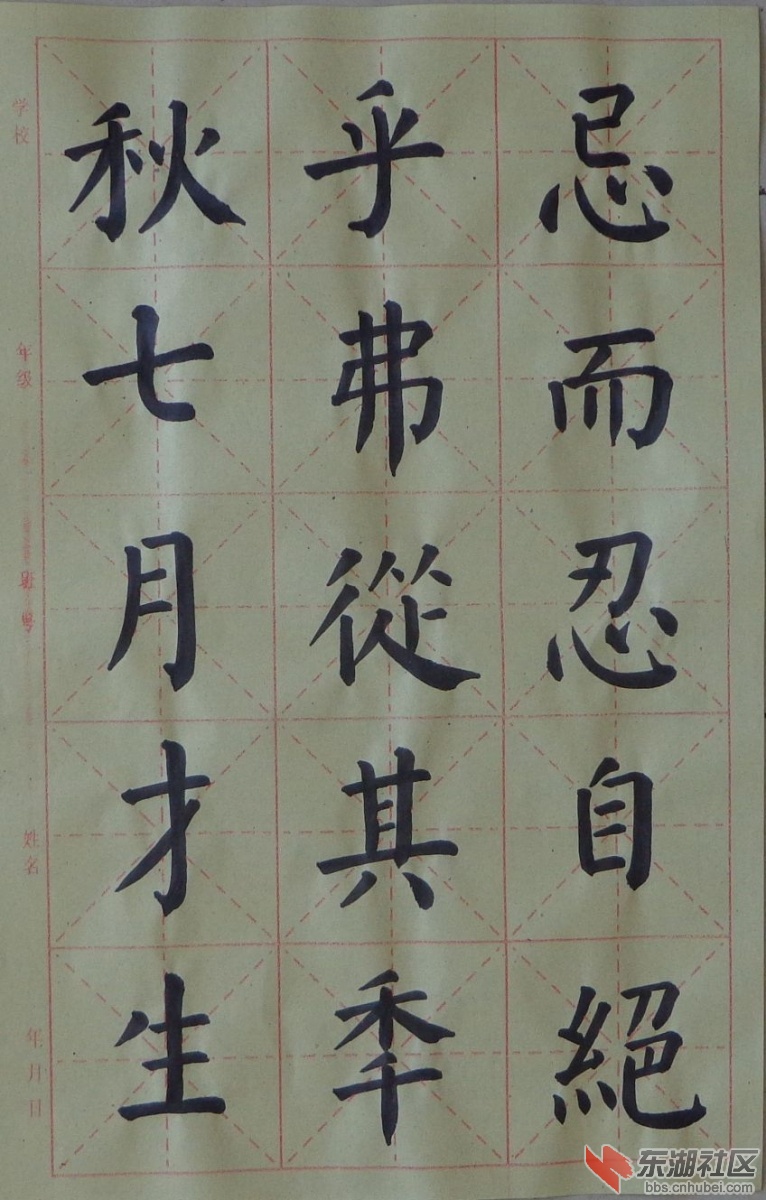 忌而忍自絕
乎弗從其秊
秋七月才生
学校
年级
班
号
姓名
年月日
东湖社区
bbs.cnhubei.com